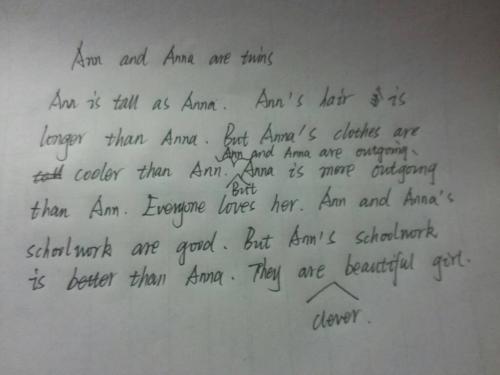 Ann and Anna are twins
Ann is tall as Anna. Ann's hair is
longer than Anna. But Anna's clothes are
Ann and Anna are outgoing.
cooler than Ann. Anna is more outgoing
But
than Ann. Everyone loves her. Ann and Anna's
schoolwork are good. But Ann's schoolwork
is better than Anna. They are beautiful girl.
clever.